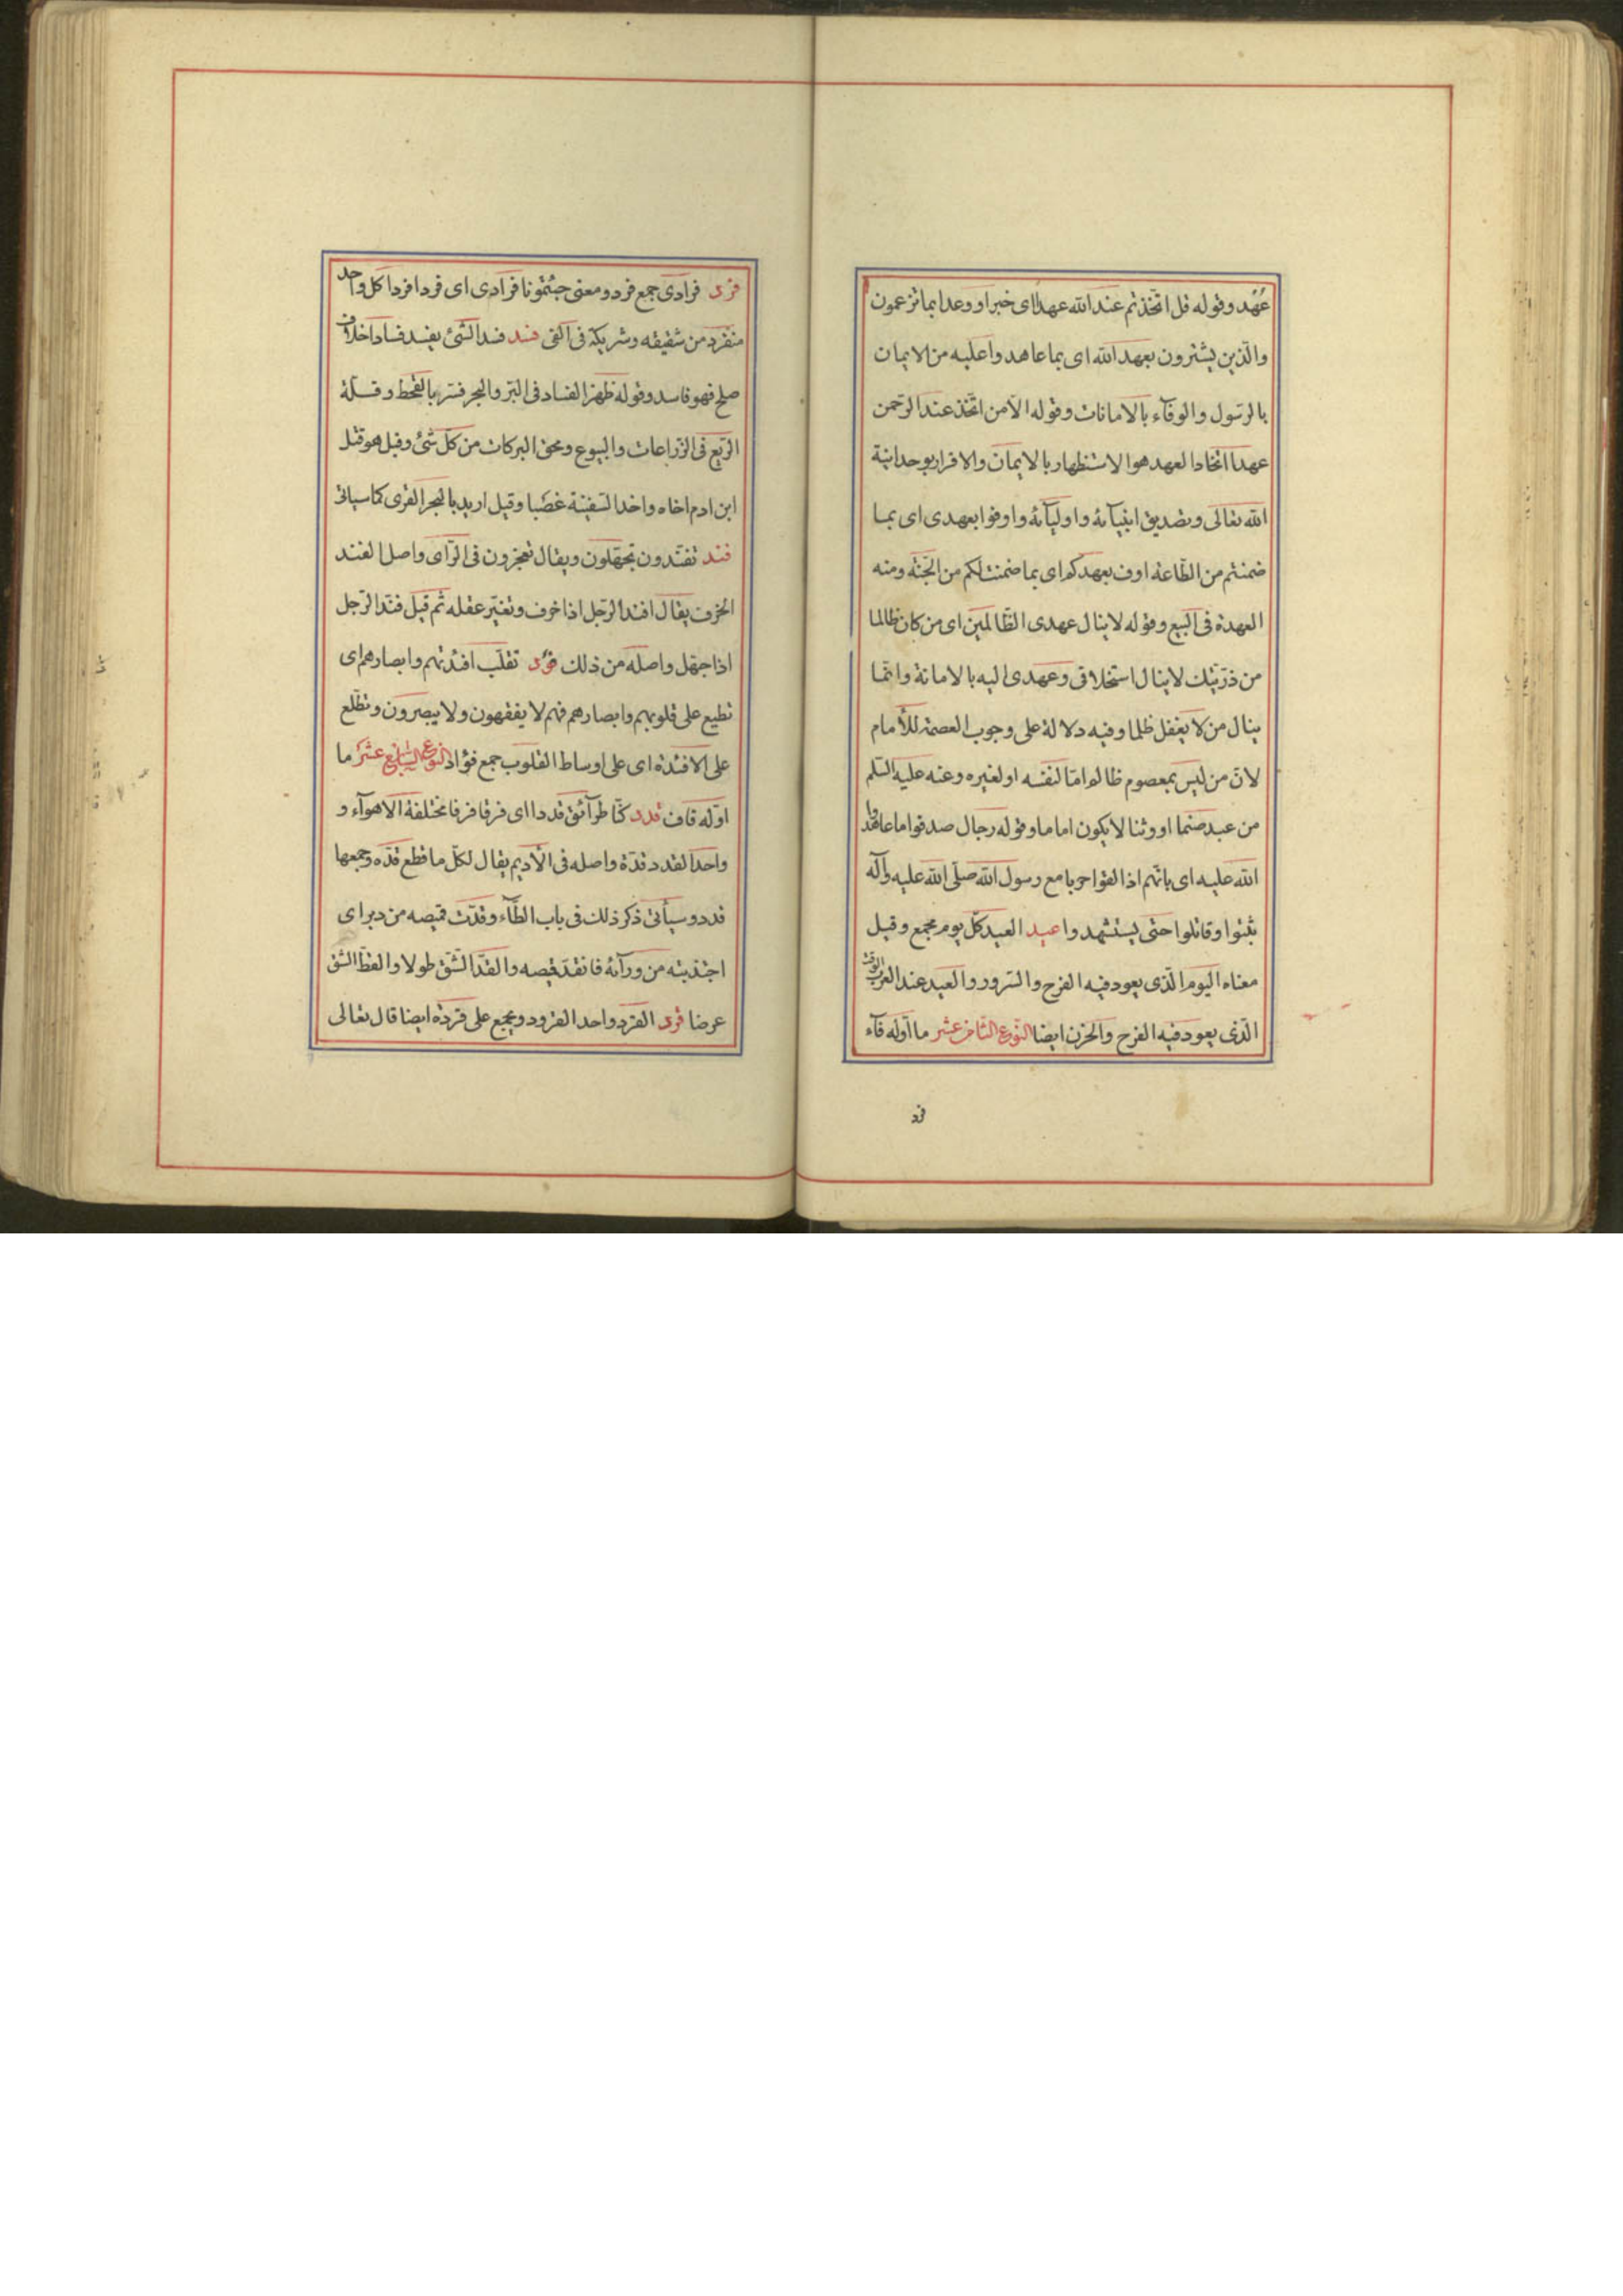 عهد وقوله قل اتخذتم عند الله عهدا اى خبرا او وعدا بما تزعمون
والذين يشترون بعهد الله اى بما عاهدوا عليه من الايمان
بالرسول والوفآء بالامانات وقوله الا من اتخذ عند الرحمن
عهدا اتخاذ العهد هو الاستظهار بالايمان والاقرار بوحدانية
الله تعالى وتصديق انبيآئه واوليآئه واوفوا بعهدى اى بما
ضمنتم من الطاعة اوف بعهدكم اى بما ضمنت لكم من الجنة ومنه
العهدة فى البيع وقوله لا ينال عهدى الظالمين اى من كان ظالما
من ذريتك لا ينال استخلافى وعهدى اليه بالامامة وانما
ينال من لا يفعل ظلما وفيه دلالة على وجوب العصمة للأمام
لان من ليس بمعصوم ظالم اما لنفسه او لغيره وعنه عليه السلم
من عبد صنما او وثنا لا يكون اماما وقوله رجال صدقوا ما عاهدوا
الله عليه اى بانهم اذا لقوا حربا مع رسول الله صلى الله عليه وآله
ثبتوا وقاتلوا حتى يستشهدوا عيد العيد كل يوم مجمع وقيل
معناه اليوم الذى يعود فيه الفرح والسرور والعيد عند العرب الوقت
الذى يعود فيه الفرح والحزن ايضا النوع الثامن عشر ما اوله فآء
فرد
فرد فرادى جمع فرد ومعنى جئتمونا فرادى اى فردا فردا كل واحد
منفرد من شقيقه وشريكه فى الغى فسد فسد الشئ يفسد فسادا خلاف
صلح فهو فاسد وقوله ظهر الفساد فى البر والبحر فسر بالقحط وقلة
الريع فى الزراعات والبيوع ومحق البركات من كل شئ وقيل هو قتل
ابن ادم اخاه واخذ السفينة غصبا وقيل اريد بالبحر القرى كما سياتى
فند تفندون تجهلون ويقال تعجزون فى الرأى واصل الفند
الخرف يقال افند الرجل اذا خرف وتغير عقله ثم قيل فند الرجل
اذا جهل واصله من ذلك فؤد تقلب افئدتهم وابصارهم اى
نطبع على قلوبهم وابصارهم فهم لا يفقهون ولا يبصرون وتطلع
على الافئدة اى على اوساط القلوب جمع فؤاد النوع التاسع عشر ما
اوله قاف قدد كنا طرآئق قددا اى فرقا فرقا مختلفة الاهوآء و
واحد القدد قدة واصله فى الأديم يقال لكل ما قطع قده وجمعها
قدد وسيأتى ذكر ذلك فى باب الطآء وقدت قميصه من دبر اى
اجتذبته من ورآئه فانقد قميصه والقد الشق طولا والقط الشق
عرضا قرد القرد واحد القرود ويجمع على قردة ايضا قال تعالى